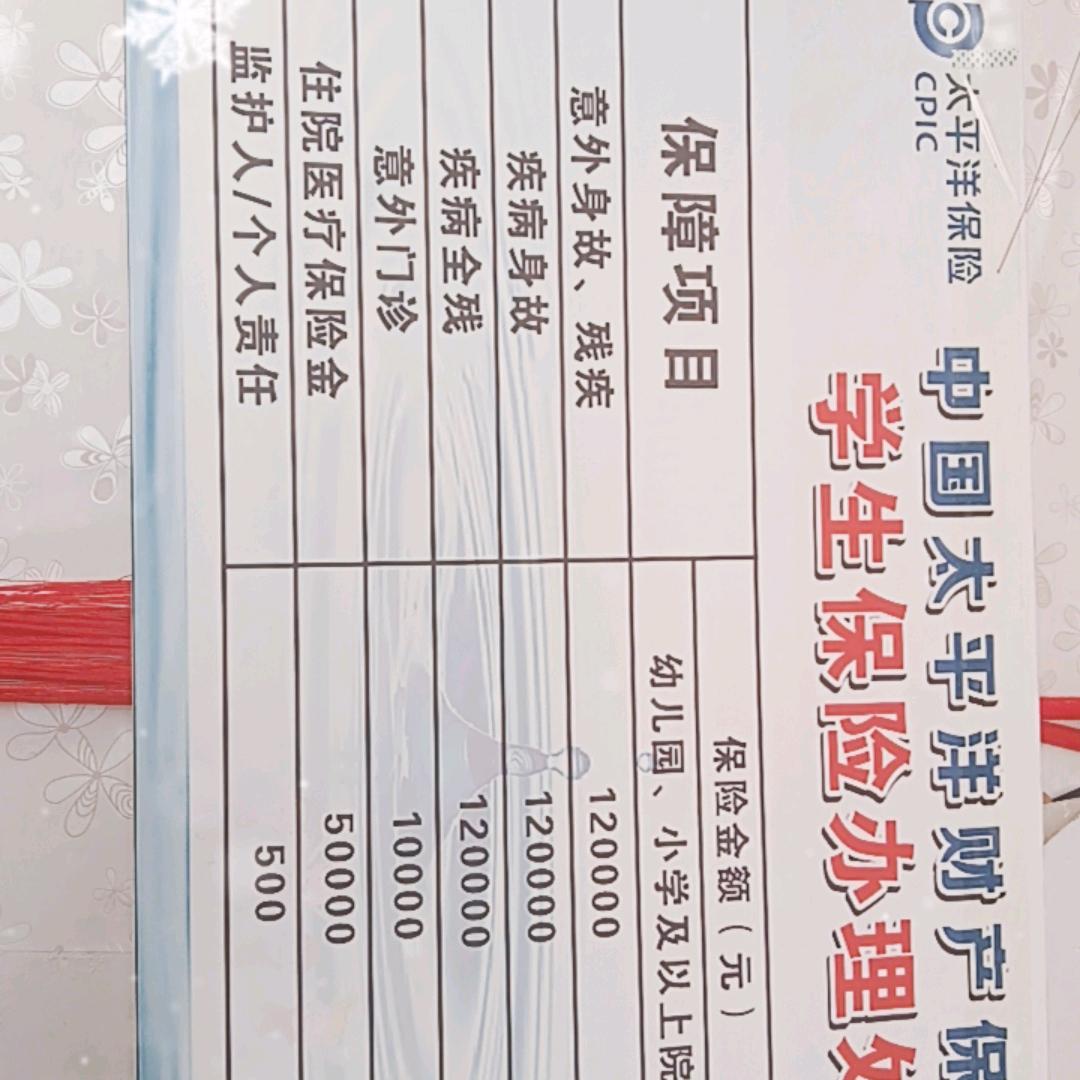 太平洋保险
CPIC
中国太平洋财产保
学生保险办理处
保障项目
保险金额(元)
幼儿园、小学及以上院
意外身故、残疾 120000
疾病身故 120000
疾病全残 120000
意外门诊 10000
住院医疗保险金 50000
监护人/个人责任 500